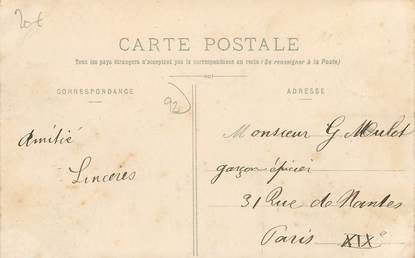 20€
CARTE POSTALE
Tous les pays étrangers n'acceptent pas la correspondance au recto (Se renseigner à la Poste)
CORRESPONDANCE
ADRESSE
92
Amitié
Sincères
Monsieur G Mulot
garçon épicier
31 Rue de Nantes
Paris XIXe